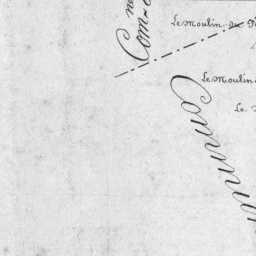 Com
Le Moulin du
Le Moulin
Le
Commun